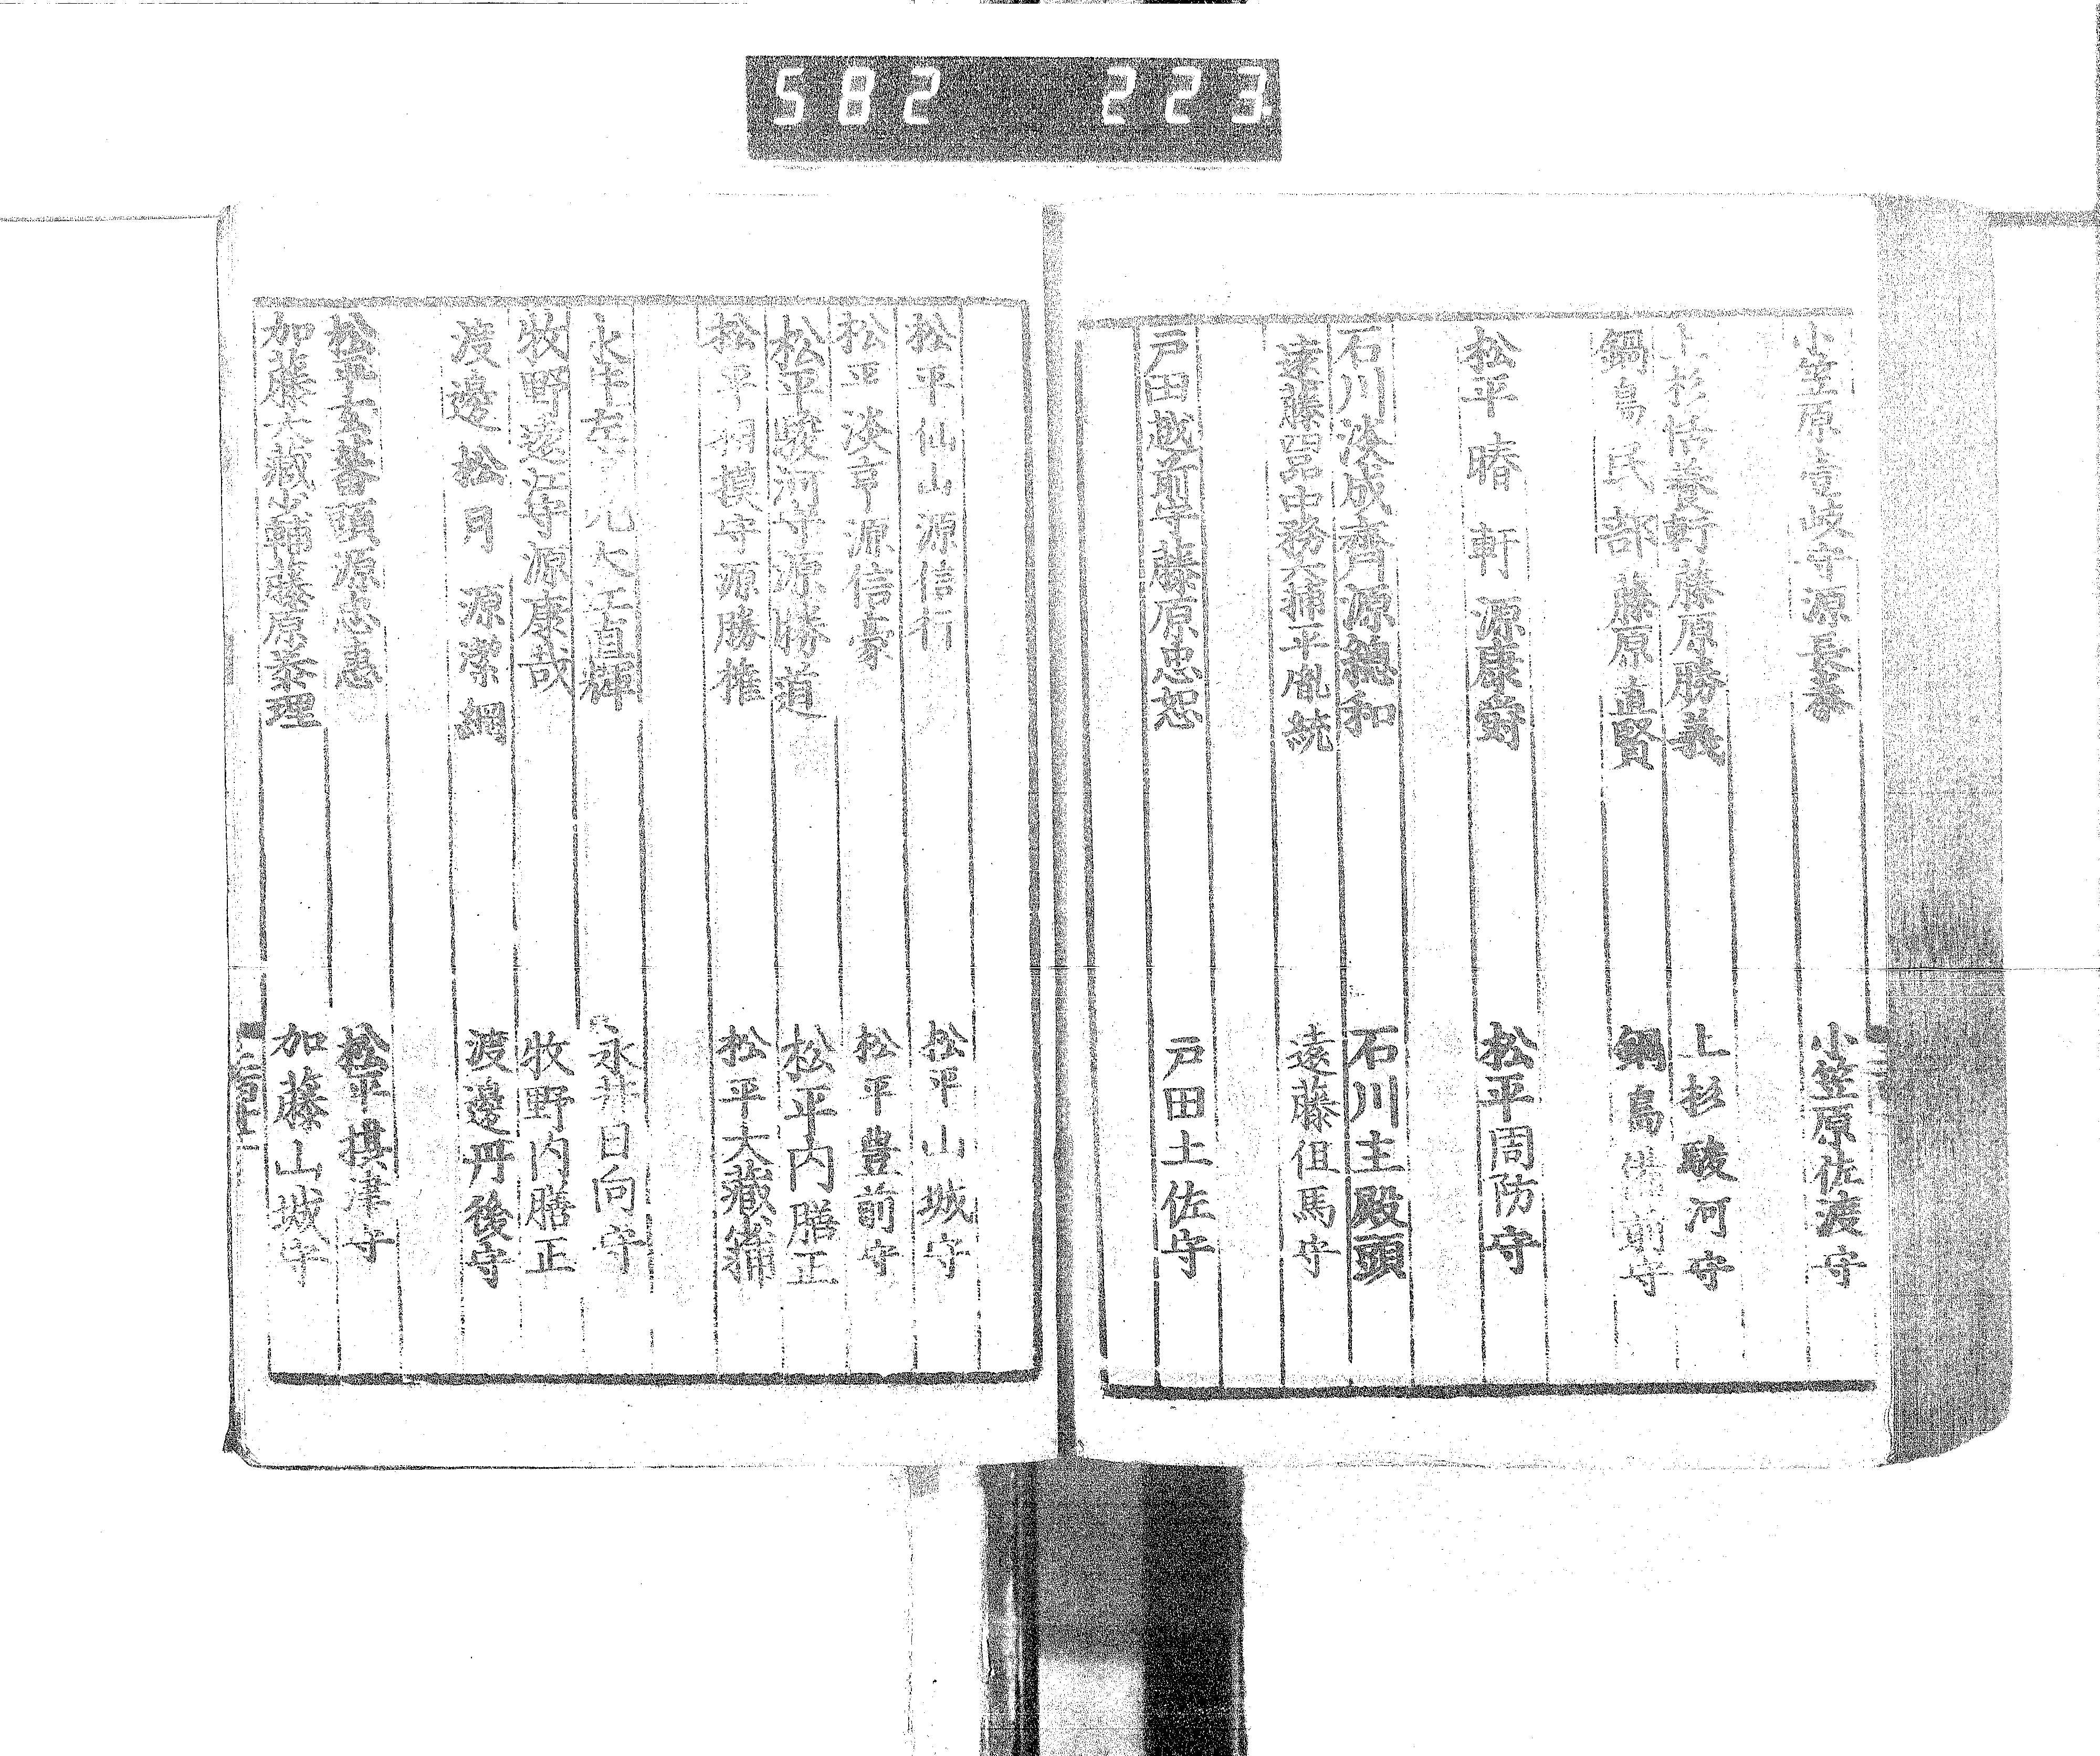 582 223.
小笠原壱岐守源長泰 小笠原佐渡守
上杉恬養軒藤原勝義 上杉駿河守
鍋島民部藤原直賢 鍋島備前守
松平 軒源康爵 松平周防守
石川淡成齊源總和 石川主殿頭
遠藤 中務大輔平胤統 遠藤但馬守
戸田越前守藤原忠恕 戸田土佐守
松平仙山源信行 松平山城守
松平淡亭源信豪 松平豊前守
松平駿河守源勝道 松平内膳正
松平相摸守源勝権 松平大藏大輔
永井左 大江直輝 永井日向守
牧野遠江守源康哉 牧野内膳正
渡邊松月源潔綱 渡邊丹後守
松平玄蕃頭源忠恵 松平摂津守
加藤大藏少輔藤原泰理 加藤山城守